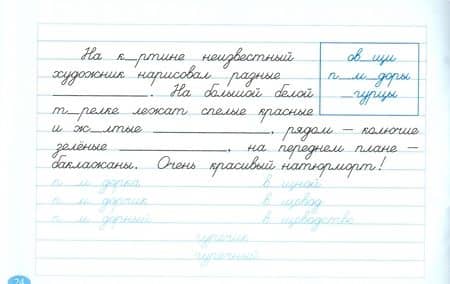 На к_ртине неизвестный
художник нарисовал разные
____________. На большой белой
т_релке лежат спелые красные
и ж_лтые ____________, рядом – колючие
зелёные ____________, на переднем плане –
баклажаны. Очень красивый натюрморт!
ов_щи
п_м_доры
_гурцы
п м дорка
в щной
п м дорчик
в щевод
п м дорный
в щеводство
гурчик
гуречный
74